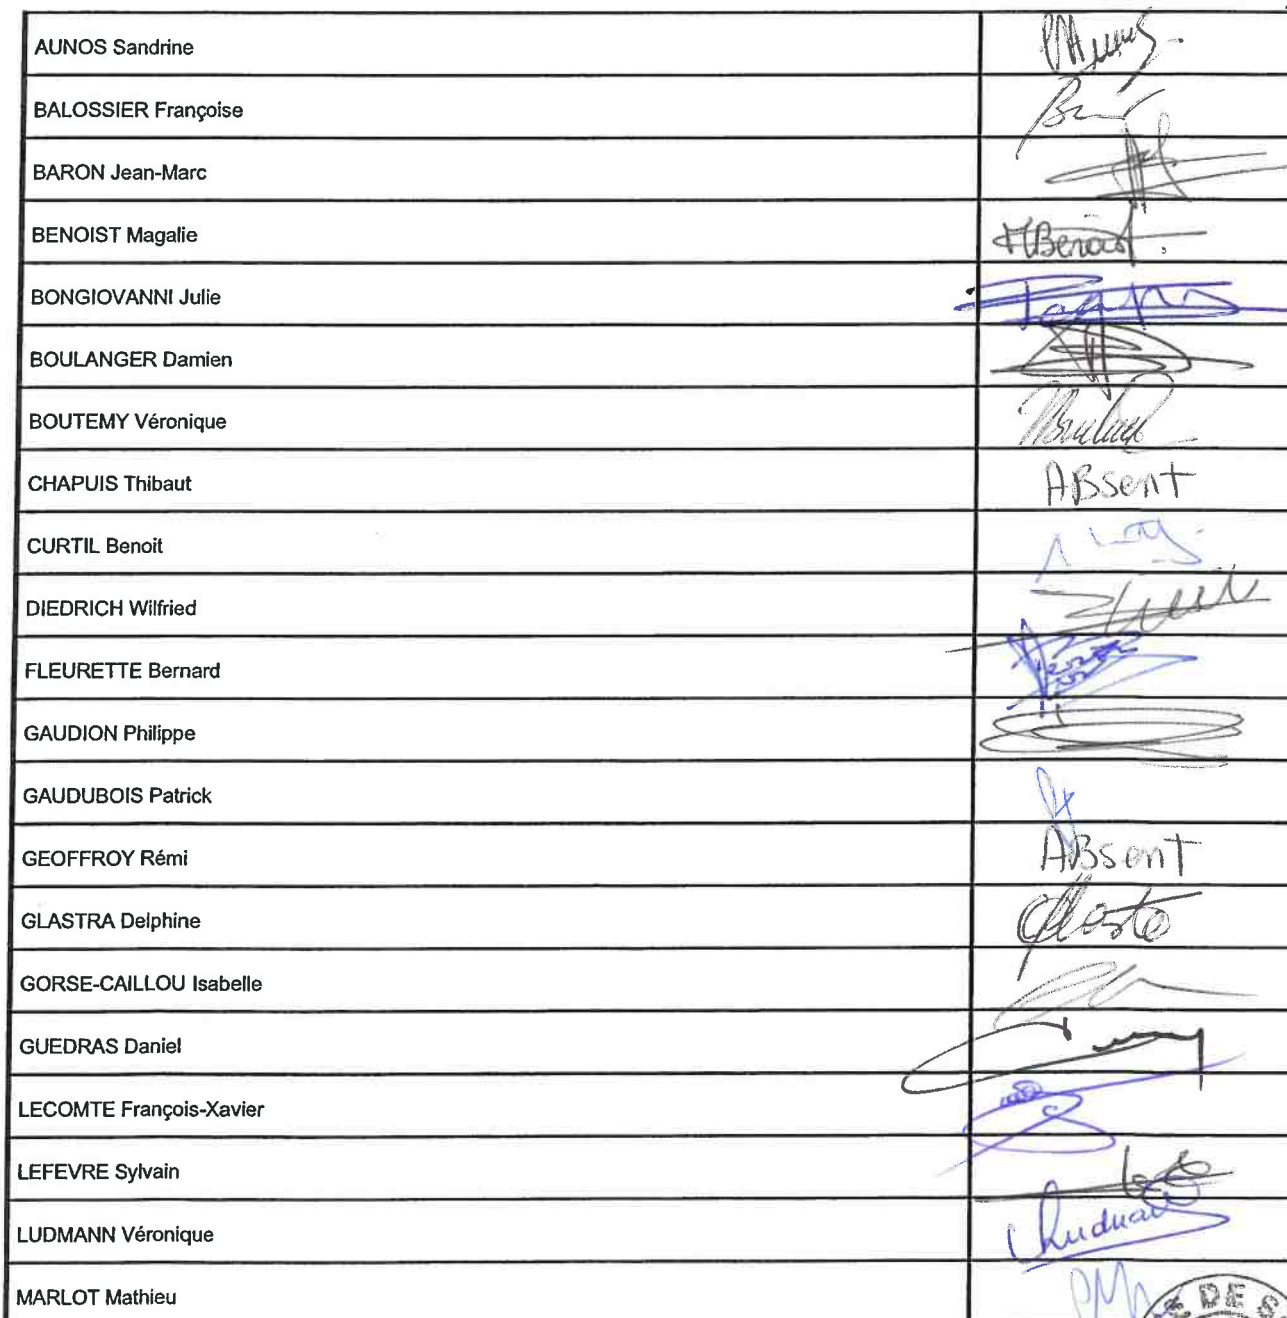 AUNOS Sandrine
BALOSSIER Françoise
BARON Jean-Marc
BENOIST Magalie MBenoist
BONGIOVANNI Julie
BOULANGER Damien
BOUTEMY Véronique
CHAPUIS Thibaut ABsent
CURTIL Benoit
DIEDRICH Wilfried
FLEURETTE Bernard
GAUDION Philippe
GAUDUBOIS Patrick
GEOFFROY Rémi ABsent
GLASTRA Delphine
GORSE-CAILLOU Isabelle
GUEDRAS Daniel
LECOMTE François-Xavier
LEFEVRE Sylvain
LUDMANN Véronique
MARLOT Mathieu
DE S